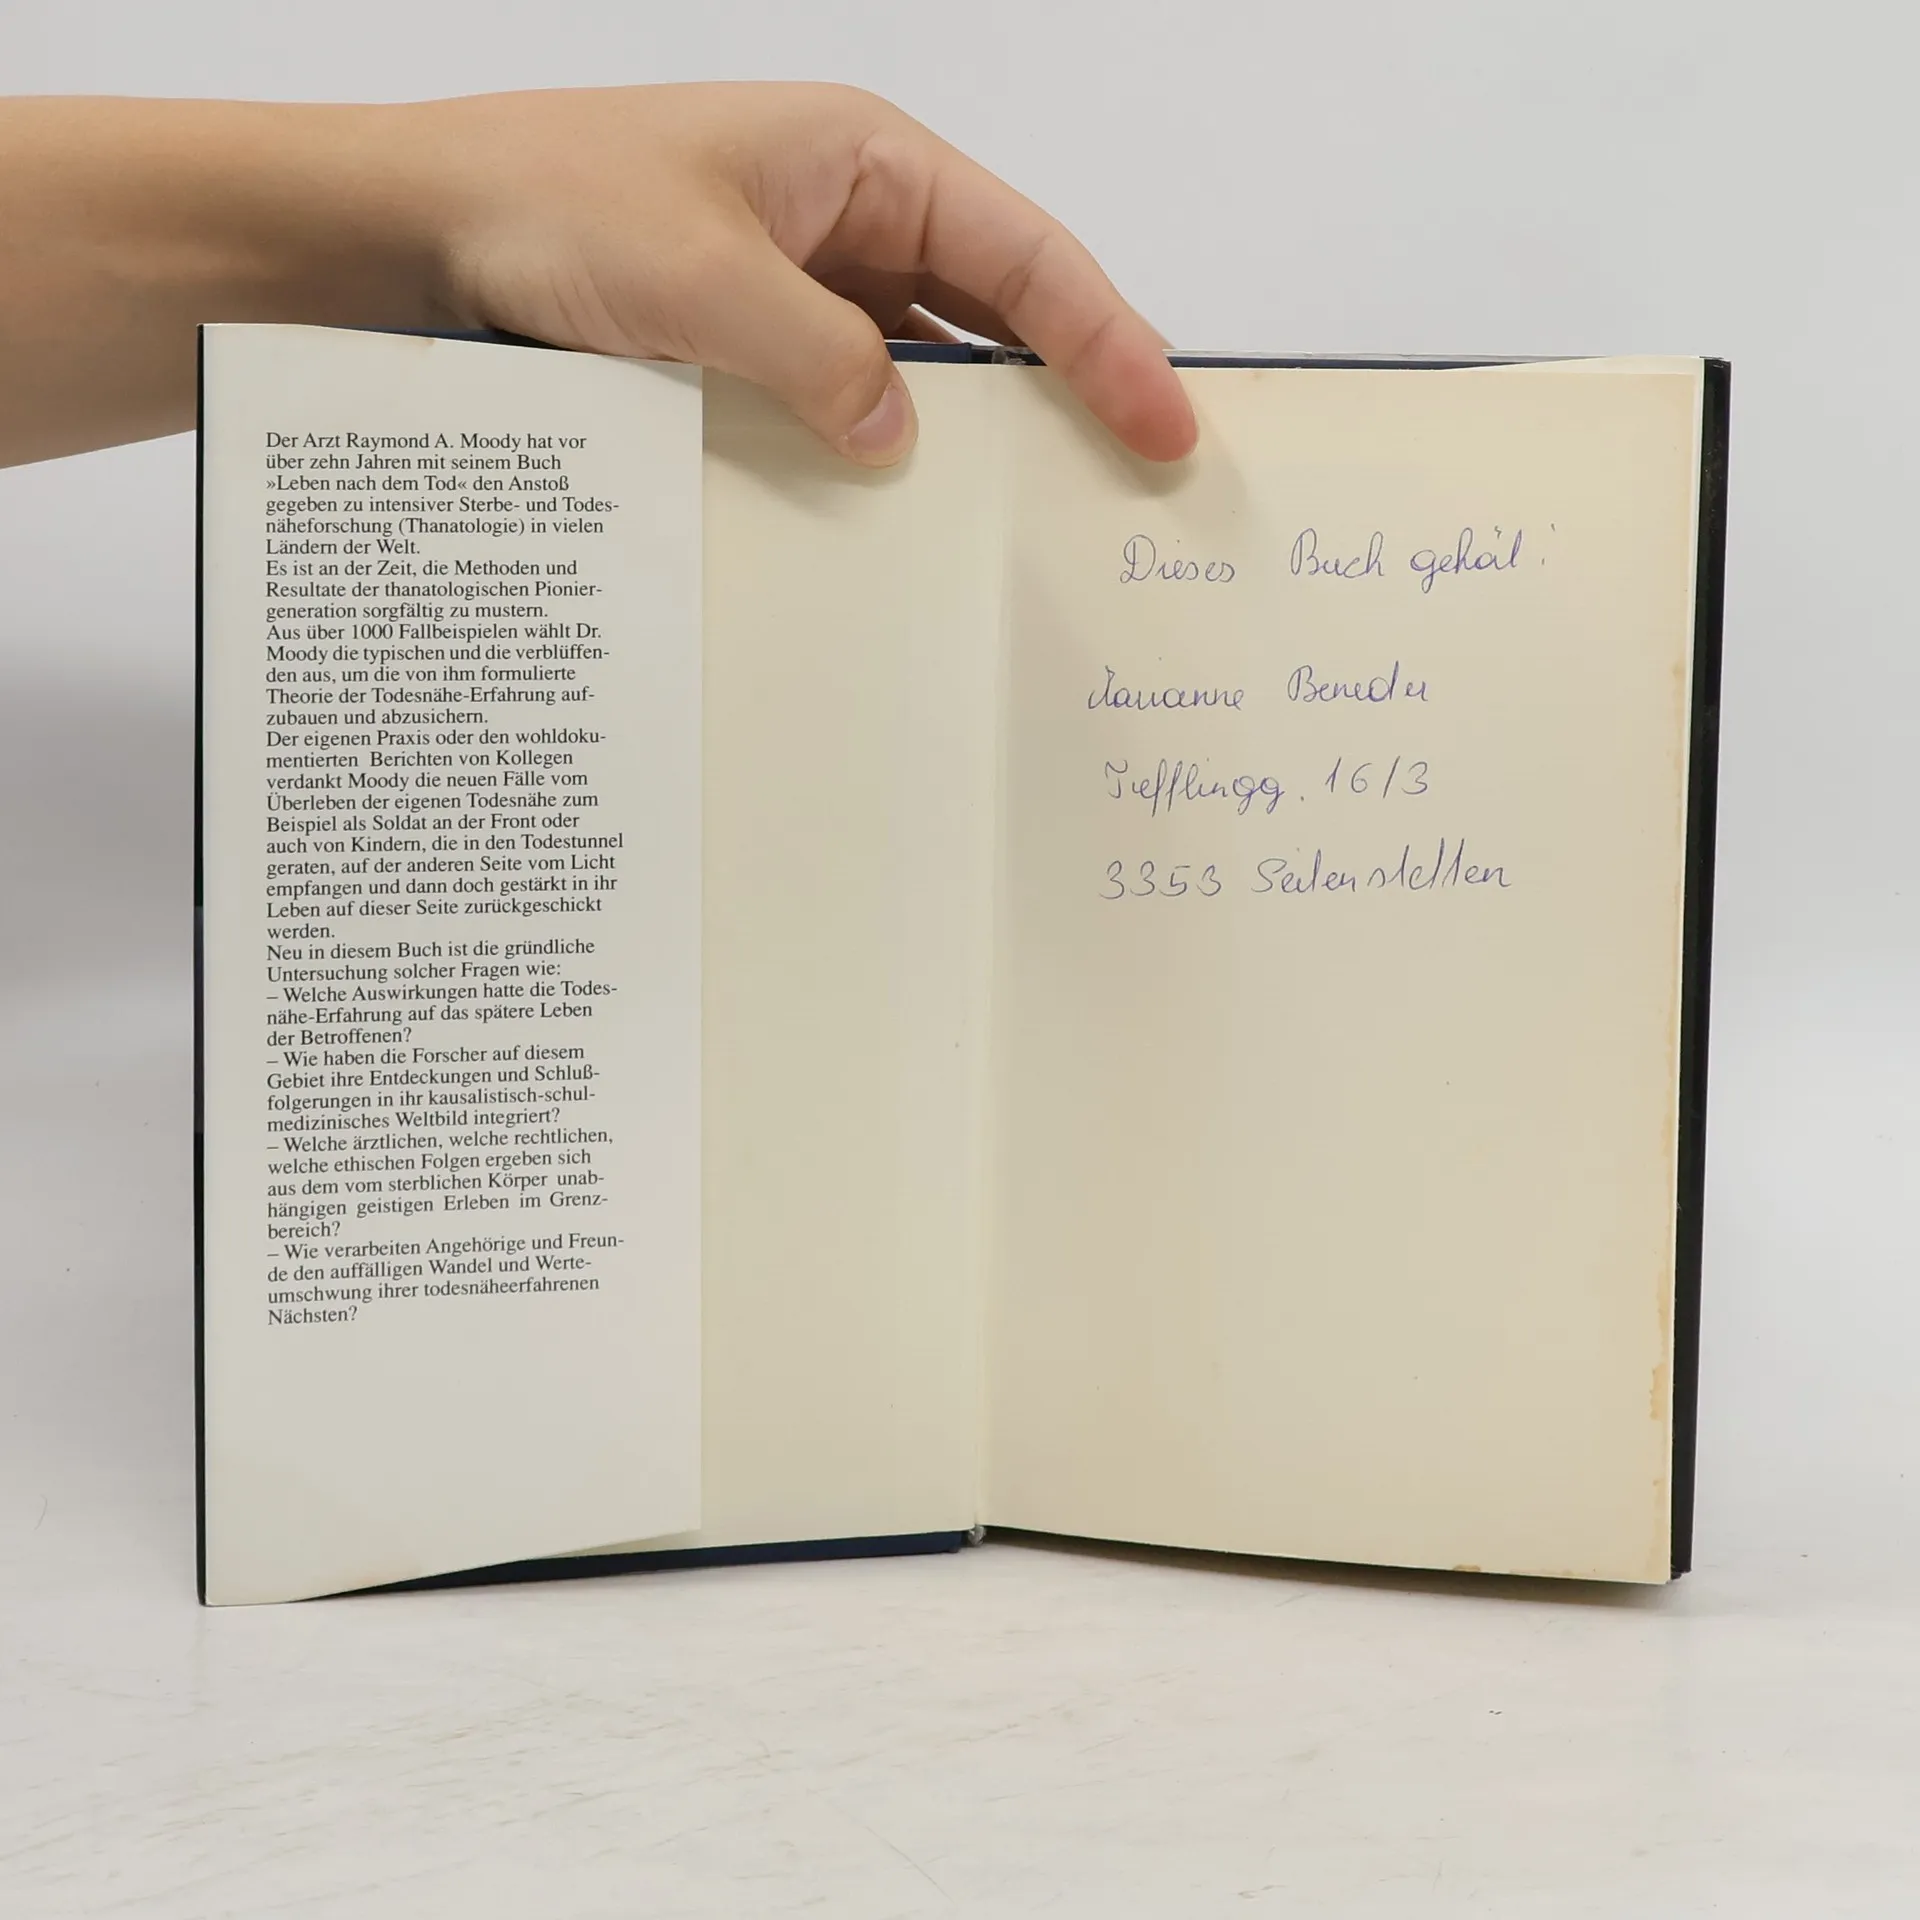 Der Arzt Raymond A. Moody hat vor
über zehn Jahren mit seinem Buch
»Leben nach dem Tod« den Anstoß
gegeben zu intensiver Sterbe- und Todes-
näheforschung (Thanatologie) in vielen
Ländern der Welt.
Es ist an der Zeit, die Methoden und
Resultate der thanatologischen Pionier-
generation sorgfältig zu mustern.
Aus über 1000 Fallbeispielen wählt Dr.
Moody die typischen und die verblüffen-
den aus, um die von ihm formulierte
Theorie der Todesnähe-Erfahrung auf-
zubauen und abzusichern.
Der eigenen Praxis oder den wohldoku-
mentierten Berichten von Kollegen
verdankt Moody die neuen Fälle vom
Überleben der eigenen Todesnähe zum
Beispiel als Soldat an der Front oder
auch von Kindern, die in den Todestunnel
geraten, auf der anderen Seite vom Licht
empfangen und dann doch gestärkt in ihr
Leben auf dieser Seite zurückgeschickt
werden.
Neu in diesem Buch ist die gründliche
Untersuchung solcher Fragen wie:
– Welche Auswirkungen hatte die Todes-
nähe-Erfahrung auf das spätere Leben
der Betroffenen?
– Wie haben die Forscher auf diesem
Gebiet ihre Entdeckungen und Schluß-
folgerungen in ihr kausalistisch-schul-
medizinisches Weltbild integriert?
– Welche ärztlichen, welche rechtlichen,
welche ethischen Folgen ergeben sich
aus dem vom sterblichen Körper unab-
hängigen geistigen Erleben im Grenz-
bereich?
– Wie verarbeiten Angehörige und Freun-
de den auffälligen Wandel und Werte-
umschwung ihrer todesnäheerfahrenen
Nächsten?
Dieses Buch gehört:
Marianne
16/3
3353 Seitenstetten